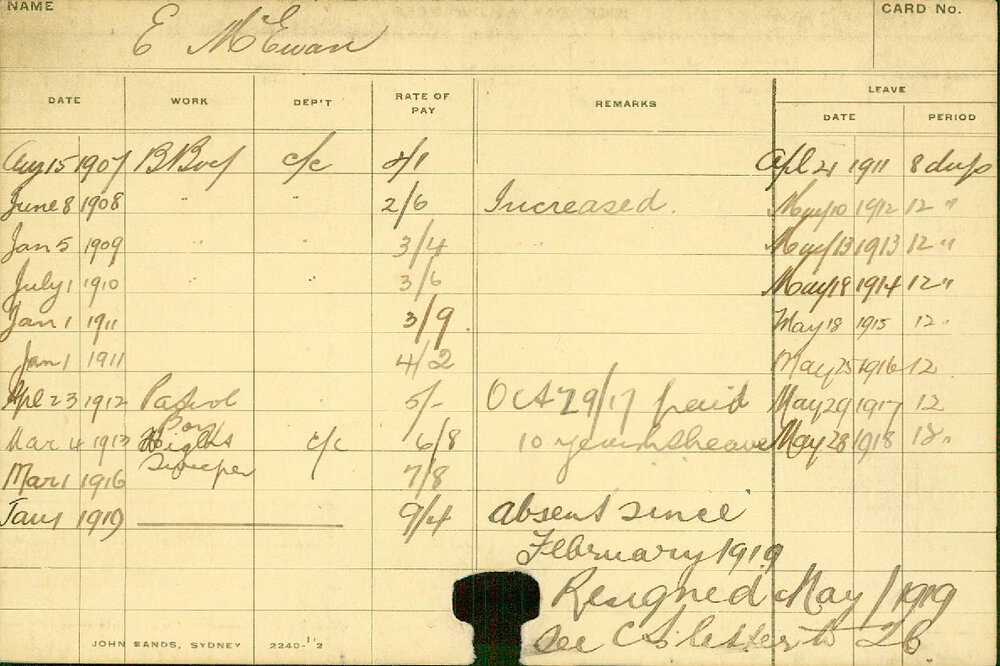 NAME E McEwan CARD No.
DATE WORK DEP'T RATE OF PAY REMARKS LEAVE
DATE PERIOD
Aug 15 1907 B Boy c/c 2/1 Apl 21 1911 8 days
June 8 1908 " " 2/6 Increased. May 10 1912 12 "
Jan 5 1909 " " 3/4 May 13 1913 12 "
July 1 1910 " " 3/6 May 18 1914 12 "
Jan 1 1911 3/9 May 18 1915 12 "
Jan 1 1911 4/2 May 25 1916 12
Apl 23 1912 Patrol 5/- Oct 29/17 paid May 29 1917 12
Boy
Mar 4 1913 c/c 6/8 10 years May 28 1918 18 "
Mar 1 1916 Sweeper 7/8
Jan 1 1919 9/4 absent since
February 1919
Resigned May / 1919
See letter 26
JOHN SANDS, SYDNEY 2240-1/2